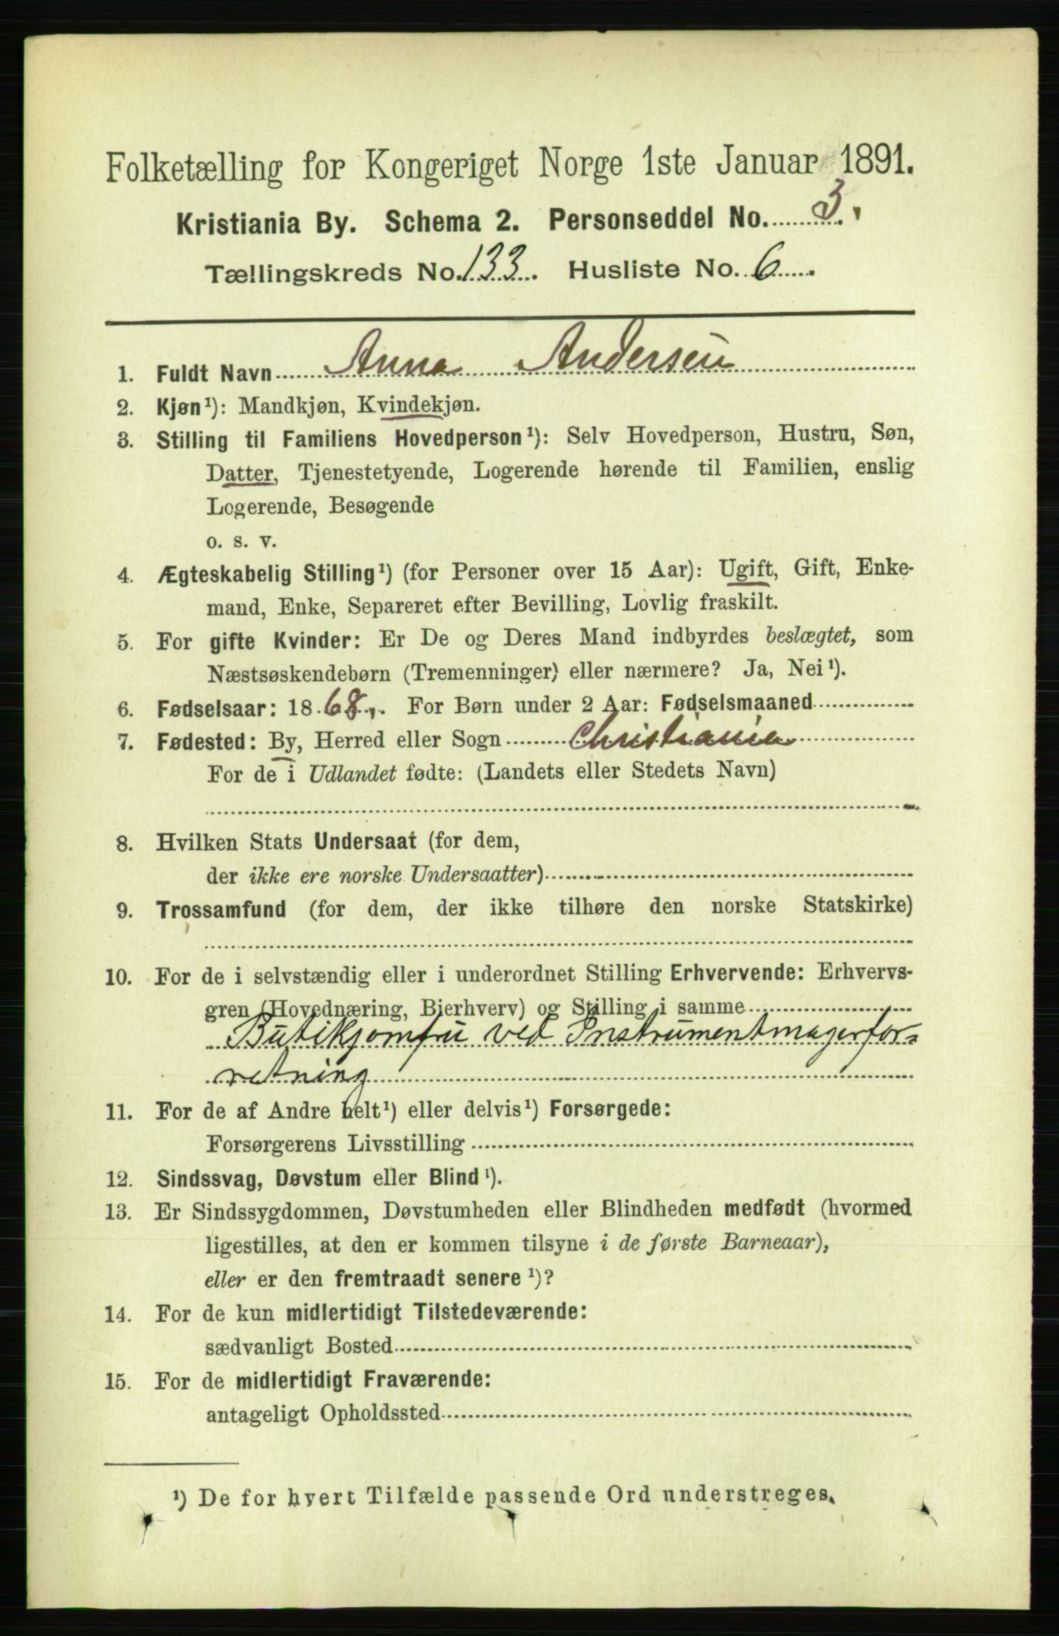 Folketælling for Kongeriget Norge 1ste Januar 1891.
Kristiania By. Schema 2. Personseddel No. 3.
Tællingskreds No. 133. Husliste No. 6
1. Fuldt Navn Anna Andersen
2. Kjøn¹): Mandkjøn, Kvindekjøn.
3. Stilling til Familiens Hovedperson¹): Selv Hovedperson, Hustru, Søn,
Datter, Tjenestetyende, Logerende hørende til Familien, enslig
Logerende, Besøgende
o. s. v.
4. Ægteskabelig Stilling¹) (for Personer over 15 Aar): Ugift, Gift, Enke-
mand, Enke, Separeret efter Bevilling, Lovlig fraskilt.
5. For gifte Kvinder: Er De og Deres Mand indbyrdes beslægtet, som
Næstsøskendebørn (Tremenninger) eller nærmere? Ja, Nei¹).
6. Fødselsaar: 1868. For Børn under 2 Aar: Fødselsmaaned
7. Fødested: By, Herred eller Sogn Christiania
For de i Udlandet fødte: (Landets eller Stedets Navn)
8. Hvilken Stats Undersaat (for dem,
der ikke ere norske Undersaatter)
9. Trossamfund (for dem, der ikke tilhøre den norske Statskirke)
10. For de i selvstændig eller i underordnet Stilling Erhvervende: Erhvervs-
gren (Hovednæring, Bierhverv) og Stilling i samme
Butikjomfru ved Instrumentmagerfor-
retning
11. For de af Andre helt¹) eller delvis¹) Forsørgede:
Forsørgerens Livsstilling
12. Sindssvag, Døvstum eller Blind¹).
13. Er Sindssygdommen, Døvstumheden eller Blindheden medfødt (hvormed
ligestilles, at den er kommen tilsyne i de første Barneaar),
eller er den fremtraadt senere¹)?
14. For de kun midlertidigt Tilstedeværende:
sædvanligt Bosted
15. For de midlertidigt Fraværende:
antageligt Opholdssted
¹) De for hvert Tilfælde passende Ord understreges.